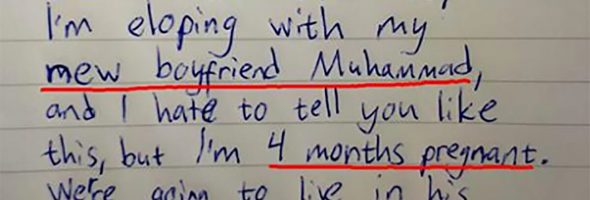 I'm eloping with my
new boyfriend Muhammad,
and I hate to tell you like
this, but I'm 4 months pregnant.
We're going to live in his